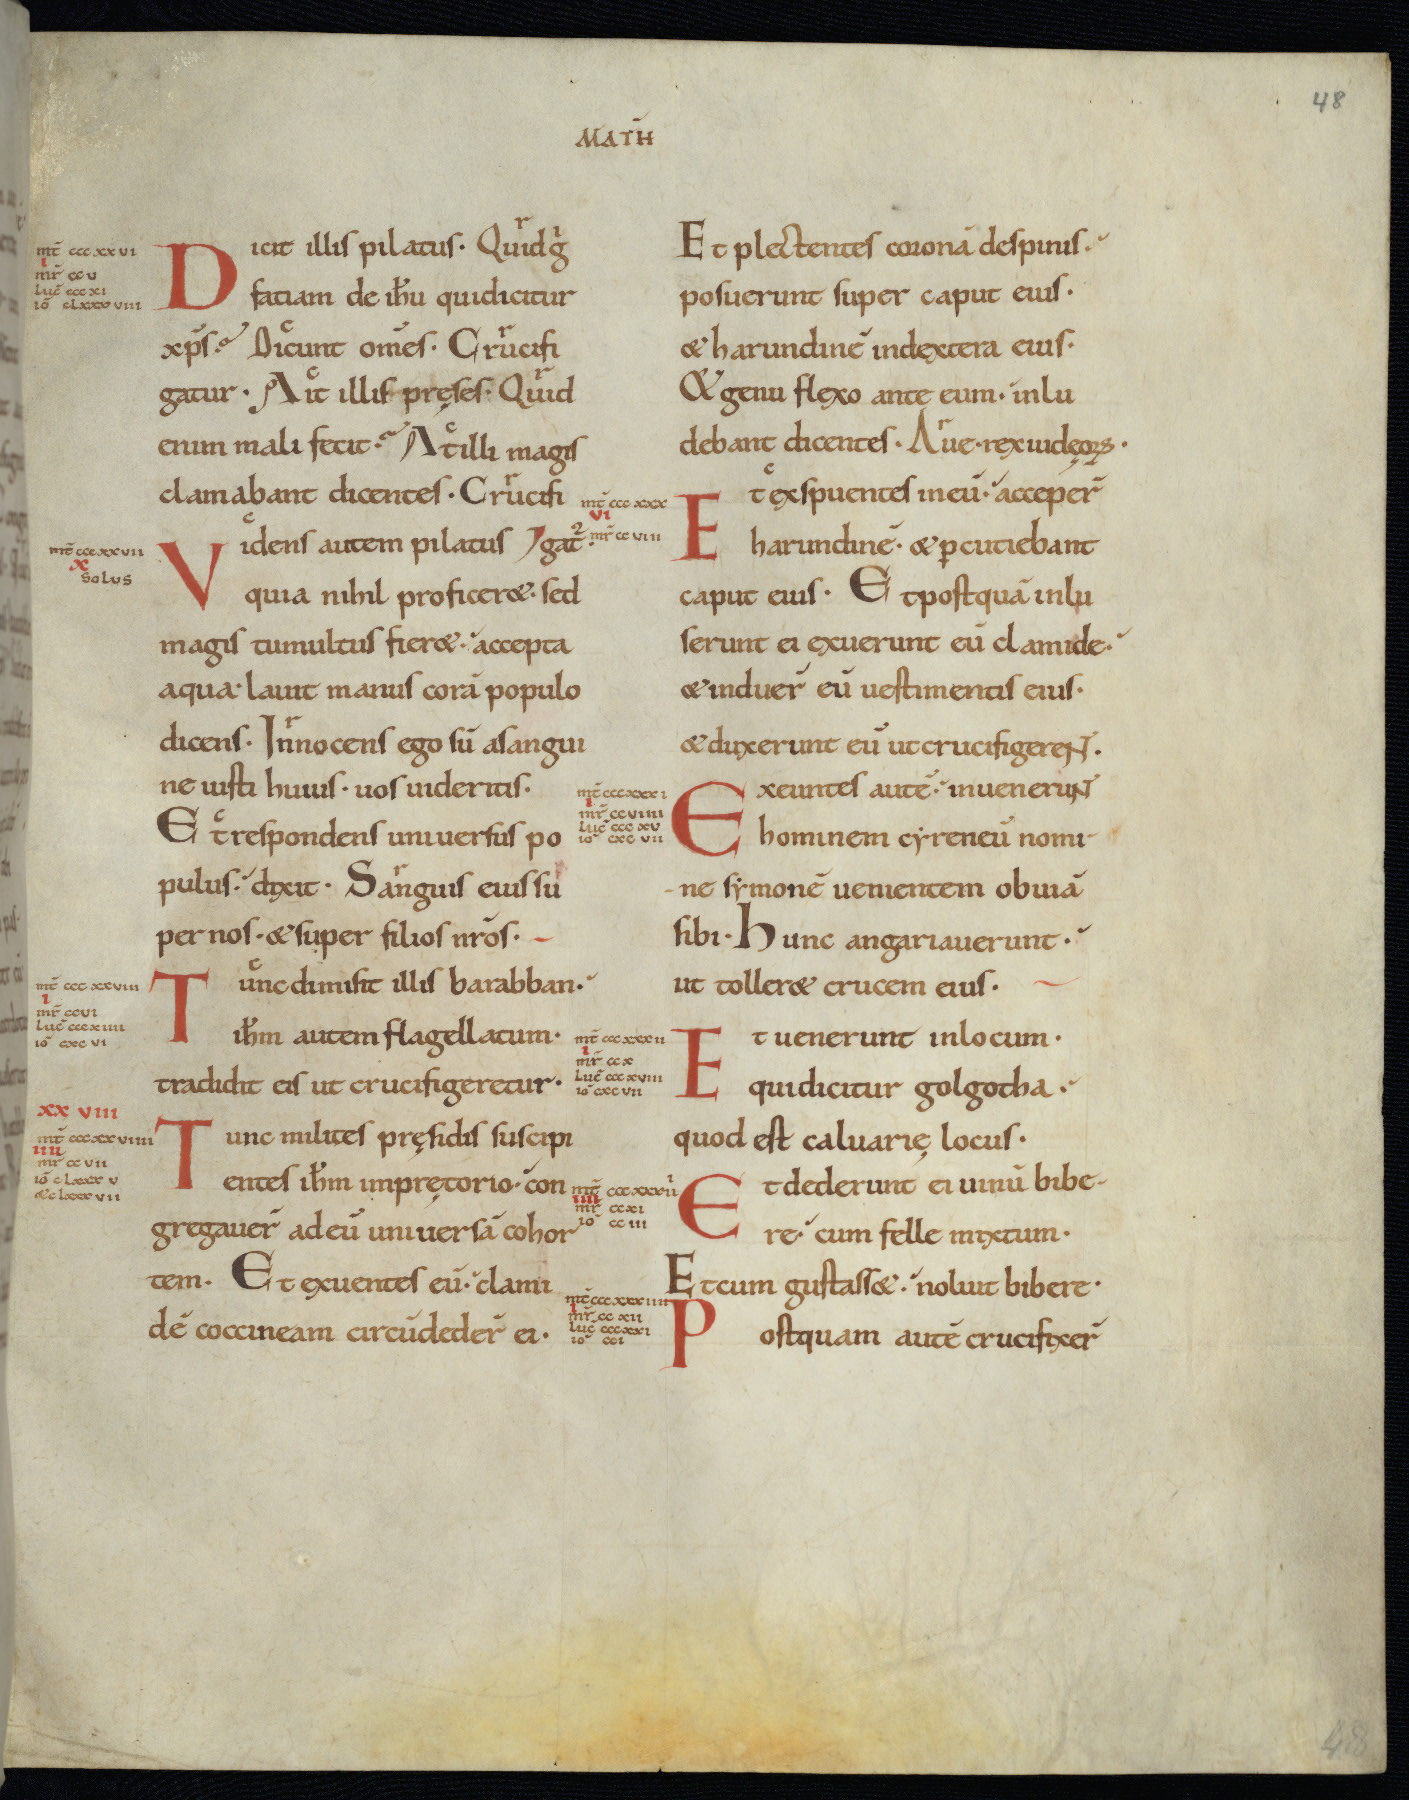 48
MATH̄
mt̄ ccc xx vi
i
mr̄ cc v
luc̄ ccc xi
io̅ clxxx viii
Dicit illis pilatus· Quid gͥ
faciam de ih̄u qui dicitur
xp̄s· Dicunt om̄es· Crucifi
gatur· Ait illis pręses· Quid
enim mali fecit· At illi magis
clamabant dicentes· Crucifi
gat᷑·
mt̄ ccc xx vii
x
solus
Videns autem pilatus
quia nihil proficer&· sed
magis tumultus fier&· accepta
aqua· lauit manus corā populo
dicens· Innocens ego sū a sangui
ne iusti huius· uos uideritis·
Et respondens uniuersus po
pulus· dixit· Sanguis eius su
per nos· & super filios nr̄os·
mt̄ ccc xx viii
i
mr̄ cc vi
luc̄ ccc x iiii
io̅ cxc vi
Tunc dimisit illis barabban·
ih̄m autem flagellatum·
tradidit eis ut crucifigeretur·
xx viii
mt̄ ccc xx viiii
iiii
mr̄ cc vii
io̅ clxxx v
& clxxx vii
Tunc milites pręsidis suscipi
entes ih̄m in pretorio· con
gregauer̄ ad eū uniuersā cohor
tem· Et exuentes eū· clami
dē coccineam circūdeder̄ ei·
Et plectentes coronā de spinis·
posuerunt super caput eius·
& harundinē in dextera eius·
& genu flexo ante eum· inlu
debant dicentes· Aue· rex iudęoꝝ·
mt̄ ccc xxx
vi
mr̄ cc viii
Et exspuentes in eū· acceper̄
harundinē· & ꝑcutiebant
caput eius· Et postquā inlu
serunt ei exuerunt eū clamide·
& induer̄ eū uestimentis eius·
& duxerunt eū ut crucifigerent·
mt̄ ccc xxx i
i
mr̄ cc viiii
luc̄ ccc xv
io̅ cxc vii
Exeuntes autē· inuenerunt
hominem cyreneū nomi-
-ne symonē uenientem obuiā
sibi· hunc angariauerunt·
ut toller& crucem eius·
mt̄ ccc xxx ii
i
mr̄ cc x
luc̄ ccc x viii
io̅ cxc vii
Et uenerunt in locum·
qui dicitur golgotha·
quod est caluarię locus·
mt̄ ccc xxx iii
iiii
mr̄ cc xi
io̅ cc iii
Et dederunt ei uinū bibe-
re· cum felle mixtum·
Et cum gustass&· noluit bibere·
mt̄ ccc xxx iiii
i
mr̄ cc xii
luc̄ ccc xxi
io̅ cci
Postquam autē crucifixer̄
48